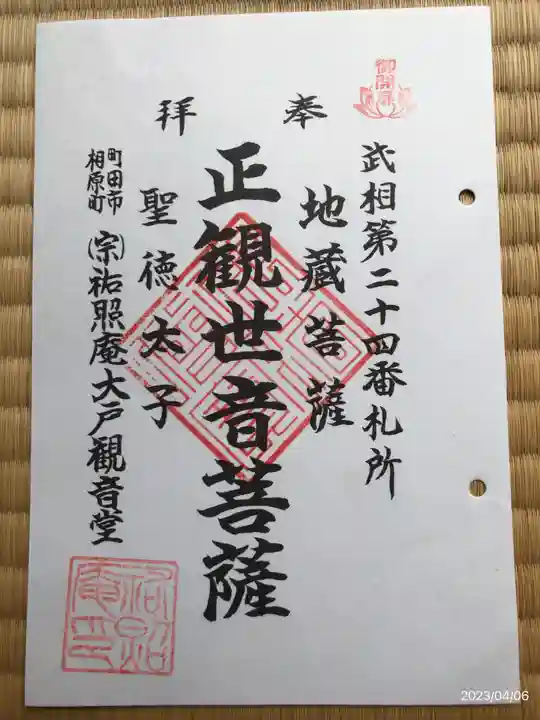 御開帳
奉拝
武相第二十四番札所
地蔵菩薩
正観世音菩薩
聖徳太子
町田市
相原町
(宗)祐照庵大戸観音堂
祐照
庵印
2023/04/06